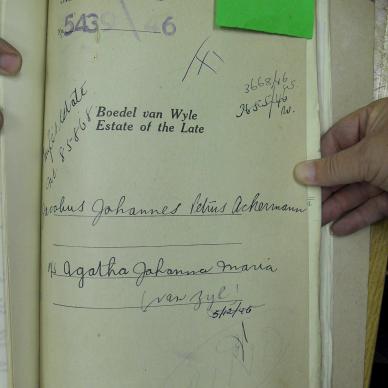 5439/46
3668/46
Boedel van Wyle
Estate of the Late
Jacobus Johannes Petrus Ackermann
Agatha Johanna Maria
(van Zyl)
5/12/45